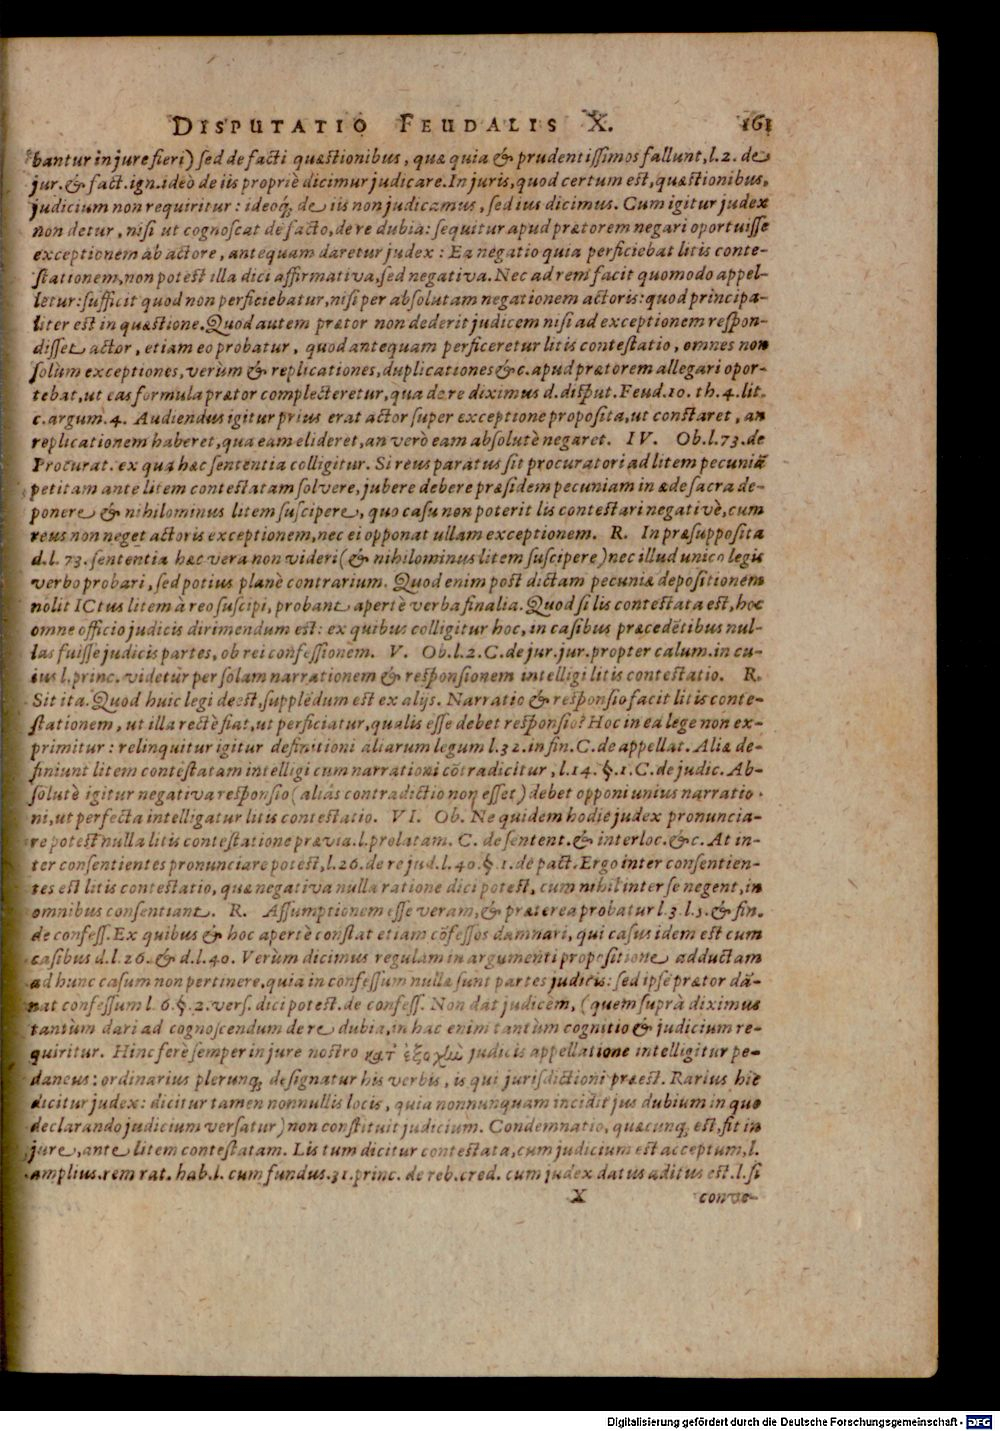 DISPUTATIO FEUDALIS X. 161
bantur in jure fieri) sed de facti quæstionibus, quæ quia & prudentissimos fallunt, l. 2. de
jur. & fact. ign. ideò de iis propriè dicimur judicare. In juris, quod certum est, quæstionibus,
judicium non requiritur: ideoq; de iis non judicamus, sed ius dicimus. Cum igitur judex
non detur, nisi ut cognoscat de facto, de re dubia: sequitur apud prætorem negari oportuisse
exceptionem ab actore, antequam daretur judex: Ea negatio quia perficiebat litis conte-
stationem, non potest illa dici affirmativa, sed negativa. Nec ad rem facit quomodo appel-
letur: sufficit quod non perficiebatur, nisi per absolutam negationem actoris: quod principa-
liter est in quæstione. Quod autem prætor non dederit judicem nisi ad exceptionem respon-
disset actor, etiam eo probatur, quod antequam perficeretur litis contestatio, omnes non
solùm exceptiones, verùm & replicationes, duplicationes & c. apud prætorem allegari opor-
tebat, ut eas formula prætor complecteretur, qua de re diximus d. disput. Feud. 10. th. 4. lit.
c. argum. 4. Audiendus igitur prius erat actor super exceptione proposita, ut constaret, an
replicationem haberet, qua eam elideret, an verò eam absolutè negaret. IV. Ob. l. 73. de
Procurat. ex qua hæc sententia colligitur. Si reus paratus sit procuratori ad litem pecuniā
petitam ante litem contestatam solvere, jubere debere præsidem pecuniam in æde sacra de-
ponere & nihilominus litem suscipere, quo casu non poterit lis contestari negativè, cum
reus non neget actoris exceptionem, nec ei opponat ullam exceptionem. R. In præsupposita
d. l. 73. sententia hæc vera non videri (& nihilominus litem suscipere) nec illud unico legis
verbo probari, sed potius planè contrarium. Quod enim post dictam pecuniæ depositionem
nolit ICtus litem à reo suscipi, probant apertè verba finalia. Quod si lis contestata est, hoc
omne officio judicis dirimendum est: ex quibus colligitur hoc, in casibus præcedētibus nul-
las fuisse judicis partes, ob rei confessionem. V. Ob. l. 2. C. de jur. jur. propter calum. in cu-
ius l. princ. videtur per solam narrationem & responsionem intelligi litis contestatio. R.
Sit ita. Quod huic legi deest, supplēdum est ex alijs. Narratio & responsio facit litis conte-
stationem, ut illa rectè fiat, ut perficiatur, qualis esse debet responsio? Hoc in ea lege non ex-
primitur: relinquitur igitur definitioni aliarum legum l. 32. in fin. C. de appellat. Aliæ de-
finiunt litem contestatam intelligi cum narrationi cōtradicitur, l. 14. §. 1. C. de judic. Ab-
solutè igitur negativa responsio (aliàs contradictio non esset) debet opponi unius narratio-
ni, ut perfecta intelligatur litis contestatio. VI. Ob. Ne quidem hodie judex pronuncia-
re potest nulla litis contestatione prævia. l. prolatam. C. de sentent. & interloc. & c. At in-
ter consentientes pronunciare potest, l. 26. de re jud. l. 40. §. 1. de pact. Ergo inter consentien-
tes est litis contestatio, quæ negativa nulla ratione dici potest, cum nihil inter se negent, in
omnibus consentiant. R. Assumptionem esse veram, & præterea probatur l. 3. l. 5. & fin.
de confess. Ex quibus & hoc apertè constat etiam cōfessos damnari, qui casus idem est cum
casibus d. l. 26. & d. l. 40. Verùm dicimus regulam in argumenti propositione adductam
ad hunc casum non pertinere, quia in confessum nullæ sunt partes judicis: sed ipse prætor dā-
nat confessum l. 6. §. 2. vers. dici potest. de confess. Non dat judicem, (quem suprà diximus
tantùm dari ad cognoscendum de re dubia, in hac enim tantùm cognitio & judicium re-
quiritur. Hinc ferè semper in jure nostro κατ' ἐξοχὼ judicis appellatione intelligitur pe-
daneus: ordinarius plerunq; designatur his verbis, is qui jurisdictioni præest. Rarius hic
dicitur judex: dicitur tamen nonnullis locis, quia nonnunquam incidit jus dubium in quo
declarando judicium versatur) non constituit judicium. Condemnatio, quæcunq; est, fit in
jure, ante litem contestatam. Lis tum dicitur contestata, cum judicium est acceptum, l.
amplius. rem rat. hab. l. cum fundus. 31. princ. de reb. cred. cum judex datus aditus est. l. si
X conve-
Digitalisierung gefördert durch die Deutsche Forschungsgemeinschaft - DFG